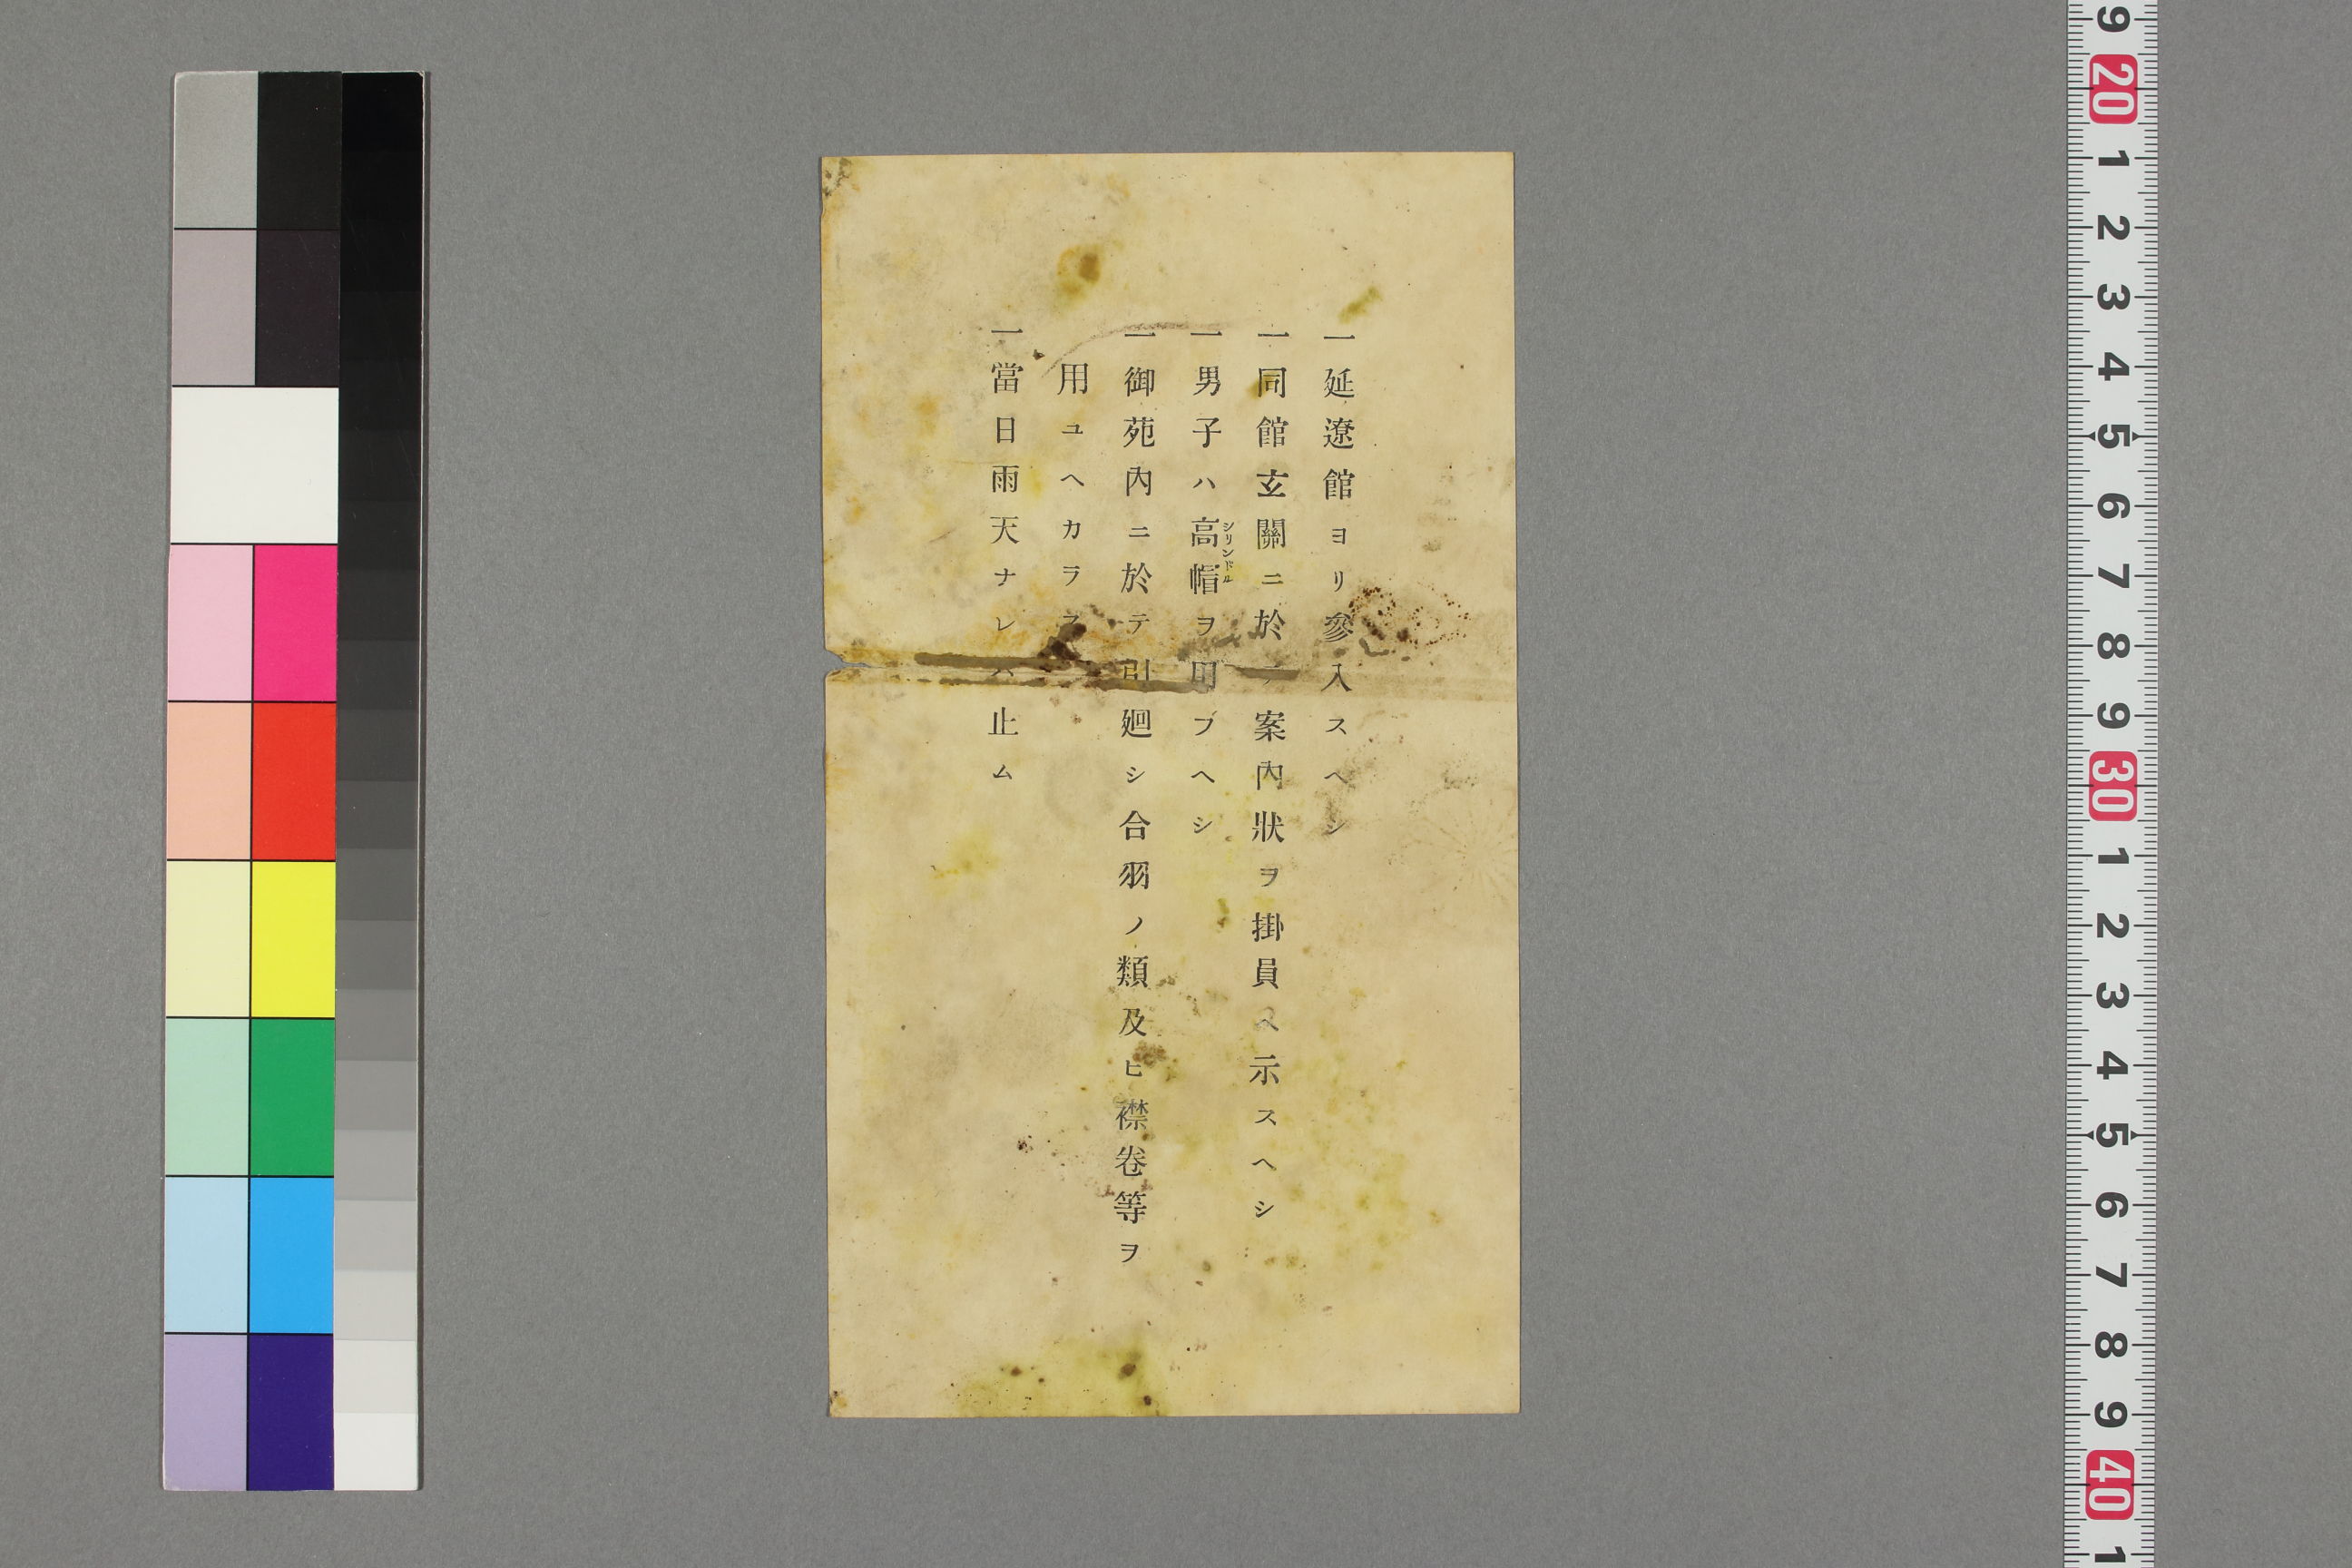 一延遼館ヨリ參入スヘシ
一同館玄關ニ於テ案內狀ヲ掛員ヘ示スヘシ
一男子ハ高帽ヲ用フヘシ
シリンドル
一御苑內ニ於テ引廻シ合羽ノ類及ヒ襟卷等ヲ
用ユヘカラス
一當日雨天ナレハ止ム
9 20 1 2 3 4 5 6 7 8 9 30 1 2 3 4 5 6 7 8 9 40 1